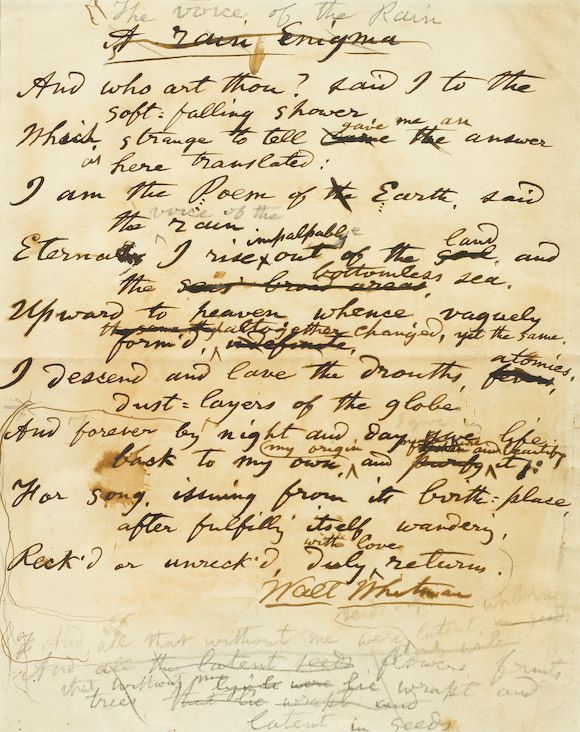 The voice of the Rain
A rain Enigma
And who art thou? said I to the
soft-falling shower
gave me an
Which, strange to tell came the answer
as here translated:
I am the Poem of the Earth, said
voice of the
the rain
impalpable land
Eternal I rise out of the soil, and
bottomless
the seas' broad areas, sea.
Upward to heaven whence vaguely
the same altogether changed, yet the same.
form'd, indefinite,
atomies,
I descend and lave the drouths, fevers,
dust-layers of the globe
And forever by night and day give life
my origin and
back to my own, and purify it;
For song, issuing from its birth-place,
after fulfilly itself wandering,
with love
Reck'd or unreck'd, duly returns.
Walt Whitman
seeds only unborn
And all that without me were latent
And all the latent seeds flowers fruits
that without me lie wrapt and
trees that lie wrapt and
latent in seeds